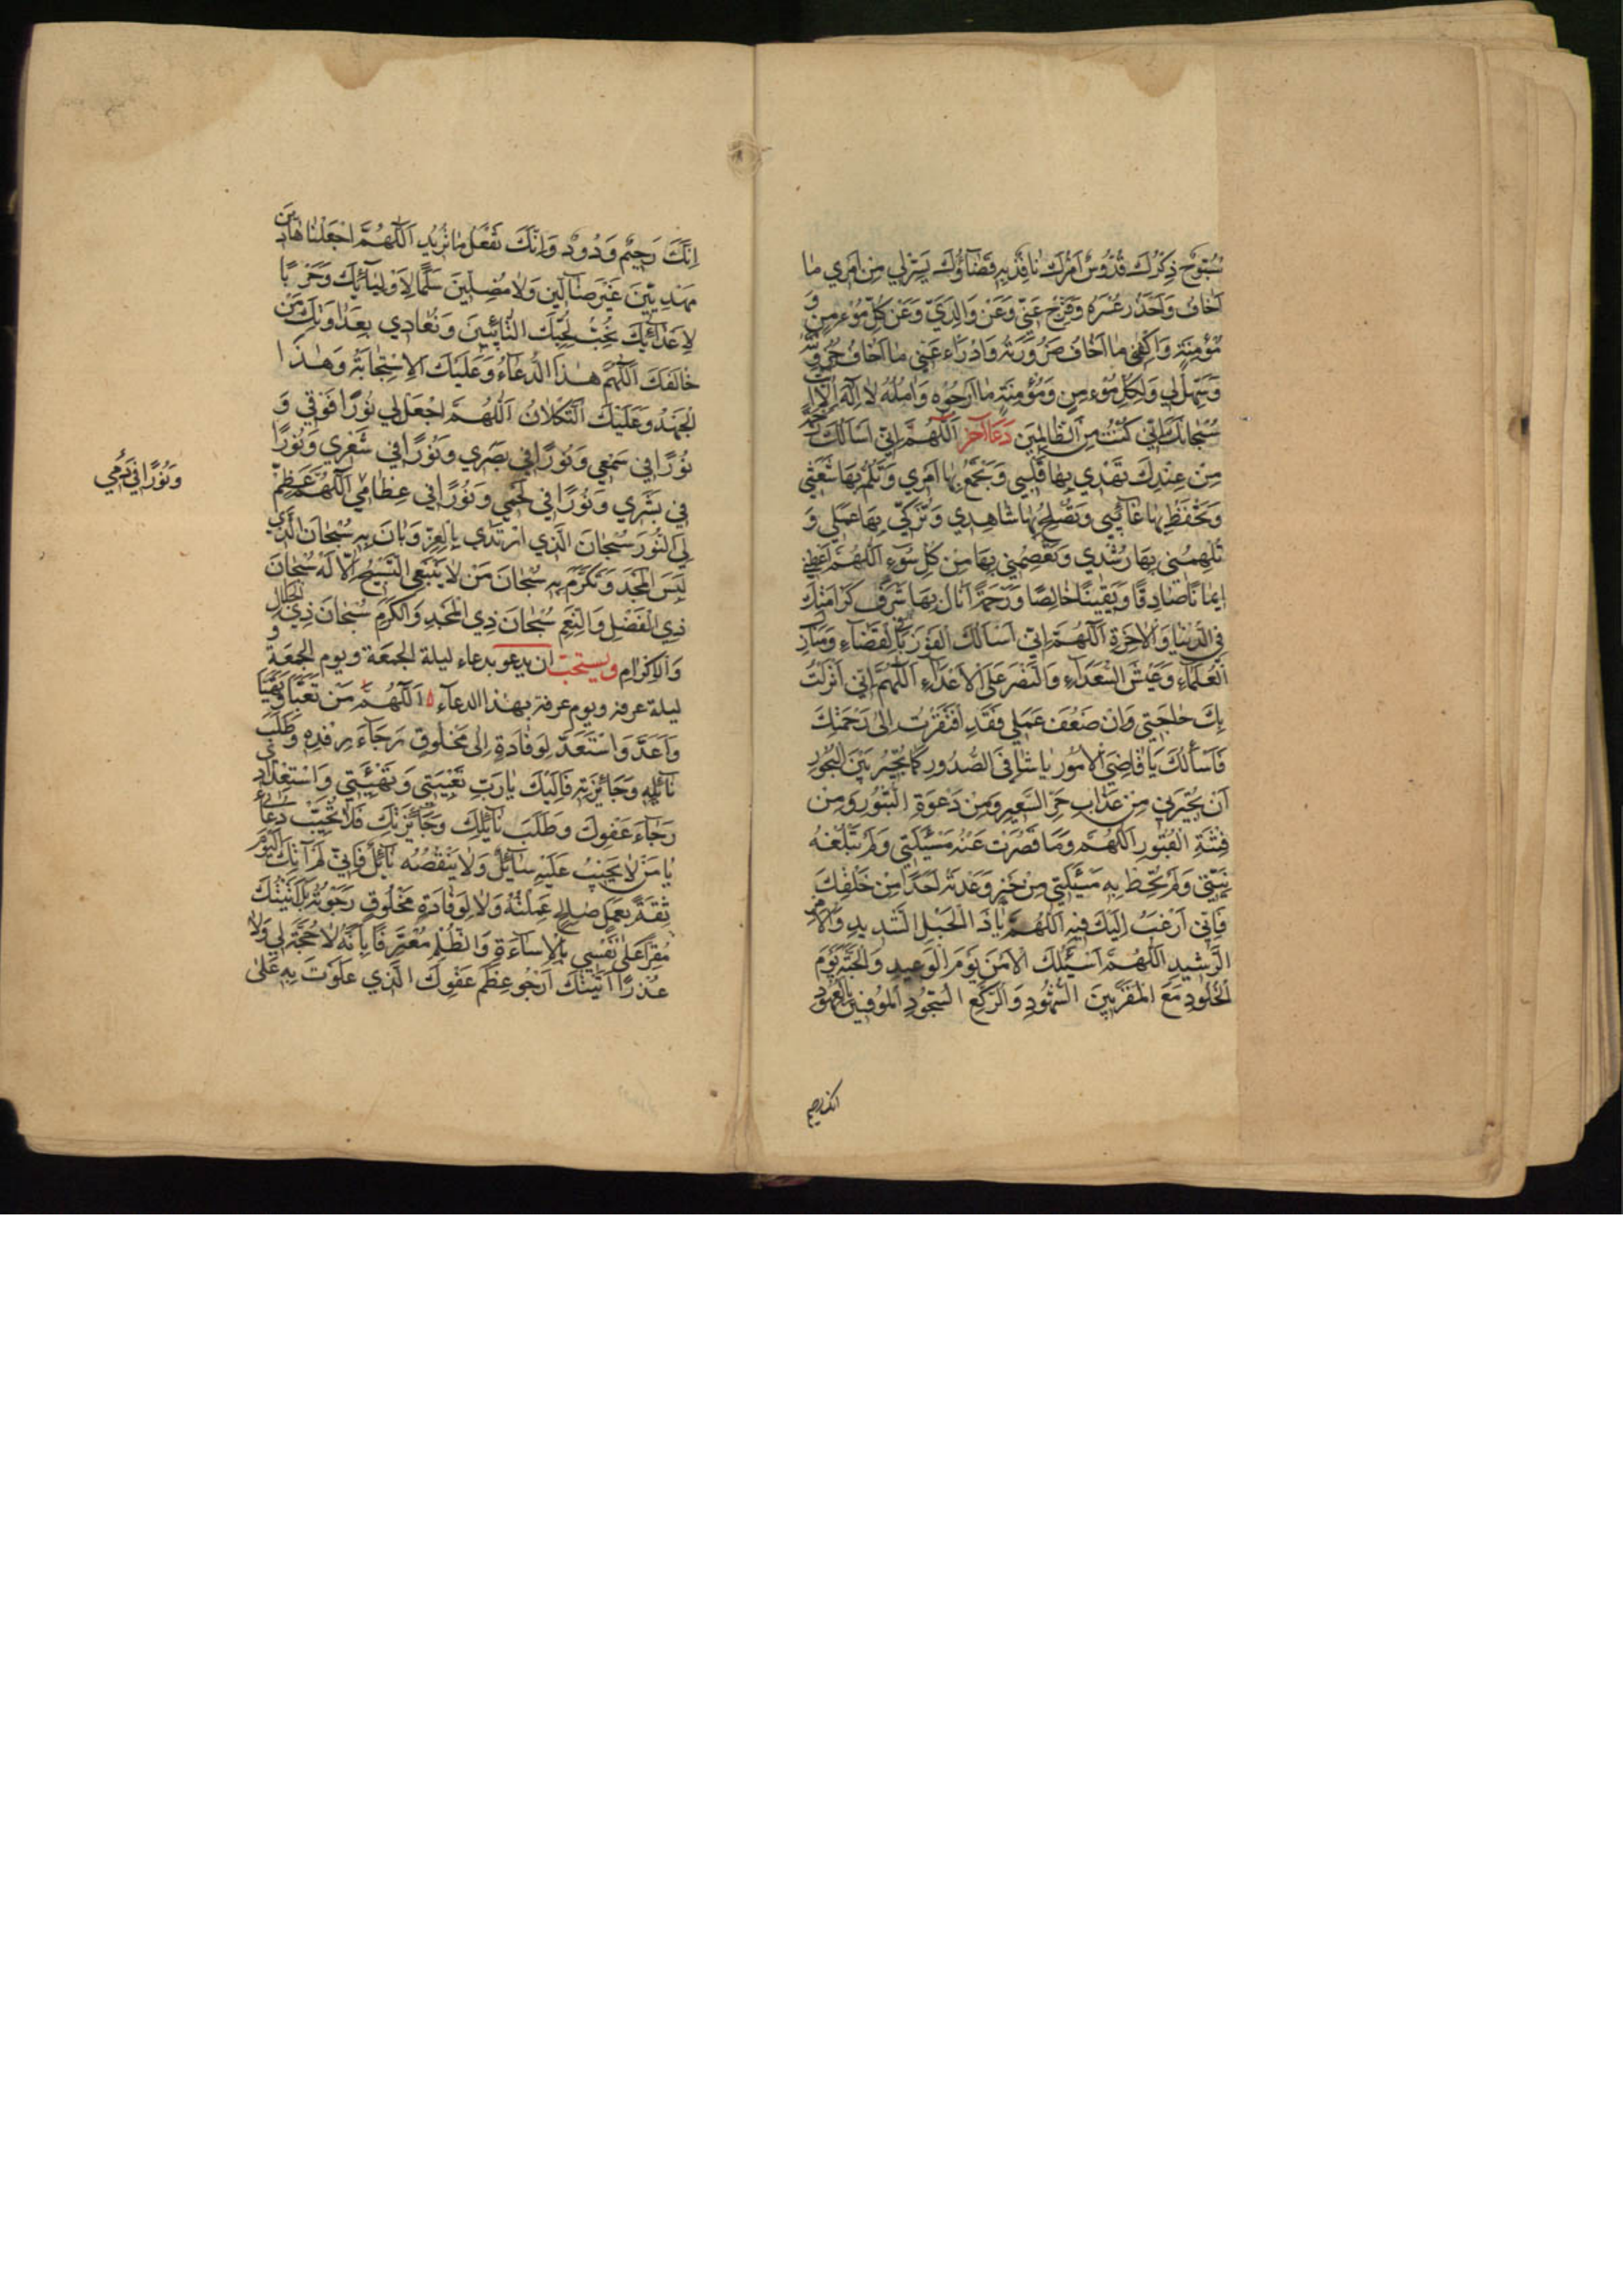 سُبُّوحٌ ذِكْرُكَ قُدُّوسٌ اَمْرُكَ نَافِذٌ بِهِ قَضَاؤُكَ يَسِّرْ لِي مِنْ اَمْرِي مَا
اَخَافُ وَاَحْذَرُ عُسْرَهُ وَفَرِّجْ عَنِّي وَعَنْ وَالِدَيَّ وَعَنْ كُلِّ مُؤْمِنٍ وَ
مُؤْمِنَةٍ وَاكْفِنِي مَا اَخَافُ ضَرُورَتَهُ وَادْرَاْءْ عَنِّي مَا اَخَافُ حُزُونَتَهُ
وَسَهِّلْ لِي وَلِكُلِّ مُؤْمِنٍ وَمُؤْمِنَةٍ مَا اَرْجُوهُ وَآمُلُهُ لَا اِلٰهَ اِلَّا اَنْتَ
سُبْحَانَكَ اِنِّي كُنْتُ مِنَ الظَّالِمِينَ دعاء آخر اَللّٰهُمَّ اِنِّي اَسْاَلُكَ رَحْمَةً
مِنْ عِنْدِكَ تَهْدِي بِهَا قَلْبِي وَتَجْمَعُ بِهَا اَمْرِي وَتَلُمُّ بِهَا شَعَثِي
وَتَحْفَظُ بِهَا غَائِبِي وَتُصْلِحُ بِهَا شَاهِدِي وَتُزَكِّي بِهَا عَمَلِي وَ
تُلْهِمُنِي بِهَا رُشْدِي وَتَعْصِمُنِي بِهَا مِنْ كُلِّ سُوءٍ اَللّٰهُمَّ اَعْطِنِي
اِيمَانًا صَادِقًا وَيَقِينًا خَالِصًا وَرَحْمَةً اَنَالُ بِهَا شَرَفَ كَرَامَتِكَ
فِي الدُّنْيَا وَالْآخِرَةِ اَللّٰهُمَّ اِنِّي اَسْاَلُكَ الْفَوْزَ بِالْقَضَاءِ وَمَنَازِلَ
الْعُلَمَاءِ وَعَيْشَ السُّعَدَاءِ وَالنَّصْرَ عَلَى الْاَعْدَاءِ اَللّٰهُمَّ اِنِّي اَنْزَلْتُ
بِكَ حَاجَتِي وَاِنْ ضَعُفَ عَمَلِي فَقَدِ افْتَقَرْتُ اِلَى رَحْمَتِكَ
فَاَسْاَلُكَ يَا قَاضِيَ الْاُمُورِ يَا شَافِيَ الصُّدُورِ كَمَا تُجِيرُ بَيْنَ الْبُحُورِ
اَنْ تُجِيرَنِي مِنْ عَذَابِ حَرِّ السَّعِيرِ وَمِنْ دَعْوَةِ الثُّبُورِ وَمِنْ
فِتْنَةِ الْقُبُورِ اَللّٰهُمَّ وَمَا قَصُرَتْ عَنْهُ مَسْئَلَتِي وَلَمْ تَبْلُغْهُ
نِيَّتِي وَلَمْ تُحِطْ بِهِ مَسْئَلَتِي مِنْ خَيْرٍ وَعَدْتَهُ اَحَدًا مِنْ خَلْقِكَ
فَاِنِّي اَرْغَبُ اِلَيْكَ فِيهِ اَللّٰهُمَّ يَا ذَا الْحَبْلِ الشَّدِيدِ وَالْاَمْرِ
الرَّشِيدِ اَللّٰهُمَّ اَسْئَلُكَ الْاَمْنَ يَوْمَ الْوَعِيدِ وَالْجَنَّةَ يَوْمَ
الْخُلُودِ مَعَ الْمُقَرَّبِينَ الشُّهُودِ وَالرُّكَّعِ السُّجُودِ الْمُوفِينَ بِالْعُهُودِ
انك رحيم
اِنَّكَ رَحِيمٌ وَدُودٌ وَاِنَّكَ تَفْعَلُ مَا تُرِيدُ اَللّٰهُمَّ اجْعَلْنَا هَادِينَ
مَهْدِيِّينَ غَيْرَ ضَالِّينَ وَلَا مُضِلِّينَ سِلْمًا لِاَوْلِيَائِكَ وَحَرْبًا
لِاَعْدَائِكَ نُحِبُّ لِحُبِّكَ التَّائِبِينَ وَنُعَادِي بِعَدَاوَتِكَ مَنْ
خَالَفَكَ اَللّٰهُمَّ هٰذَا الدُّعَاءُ وَعَلَيْكَ الْاِسْتِجَابَةُ وَهٰذَا
الْجَهْدُ وَعَلَيْكَ التُّكْلَانُ اَللّٰهُمَّ اجْعَلْ لِي نُورًا فَوْقِي وَ
نُورًا فِي سَمْعِي وَنُورًا فِي بَصَرِي وَنُورًا فِي شَعْرِي وَنُورًا
فِي بَشَرِي وَنُورًا فِي لَحْمِي وَنُورًا فِي عِظَامِي اَللّٰهُمَّ عَظِّمْ
وَنُورًا فِي دَمِي
لِيَ النُّورَ سُبْحَانَ الَّذِي ارْتَدَى بِالْعِزِّ وَبَانَ بِهِ سُبْحَانَ الَّذِي
لَبِسَ الْمَجْدَ وَتَكَرَّمَ بِهِ سُبْحَانَ مَنْ لَا يَنْبَغِي التَّسْبِيحُ اِلَّا لَهُ سُبْحَانَ
ذِي الْفَضْلِ وَالنِّعَمِ سُبْحَانَ ذِي الْمَجْدِ وَالْكَرَمِ سُبْحَانَ ذِي الْجَلَالِ
وَالْاِكْرَامِ ويستحب ان يدعو بدعاء ليلة الجمعة ويوم الجمعة و
ليلة عرفة ويوم عرفة بهذا الدعاء اَللّٰهُمَّ مَنْ تَعَبَّأَ وَتَهَيَّأَ
وَاَعَدَّ وَاسْتَعَدَّ لِوِفَادَةٍ اِلَى مَخْلُوقٍ رَجَاءَ رِفْدِهِ وَطَلَبَ
نَائِلِهِ وَجَائِزَتِهِ فَاِلَيْكَ يَا رَبِّ تَعْبِيَتِي وَتَهْيِئَتِي وَاسْتِعْدَادِي
رَجَاءَ عَفْوِكَ وَطَلَبَ نَائِلِكَ وَجَائِزَتِكَ فَلَا تُخَيِّبْ دُعَائِي
يَا مَنْ لَا يَخِيبُ عَلَيْهِ سَائِلٌ وَلَا يَنْقُصُهُ نَائِلٌ فَاِنِّي لَمْ آتِكَ الْيَوْمَ
ثِقَةً بِعَمَلٍ صَالِحٍ عَمِلْتُهُ وَلَا لِوِفَادَةِ مَخْلُوقٍ رَجَوْتُهُ بَلْ اَتَيْتُكَ
مُقِرًّا عَلَى نَفْسِي بِالْاِسَاءَةِ وَالظُّلْمِ مُعْتَرِفًا بِاَنَّهُ لَا حُجَّةَ لِي وَلَا
عُذْرًا اَتَيْتُكَ اَرْجُو عِظَمَ عَفْوِكَ الَّذِي عَلَوْتَ بِهِ عَلَى